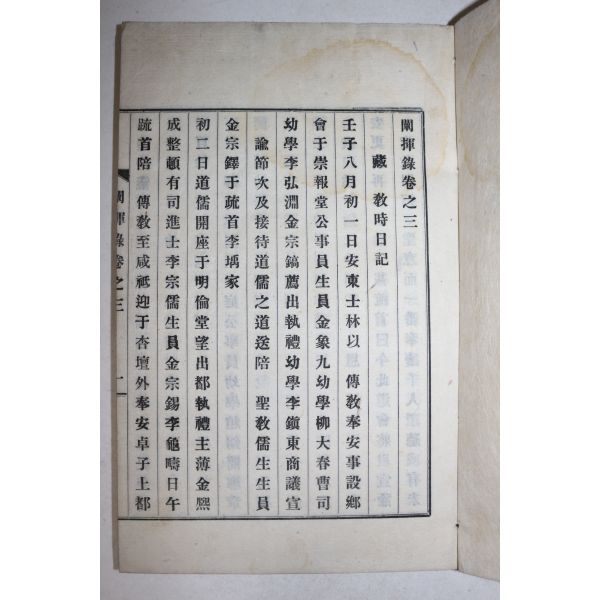 闡揮錄卷之三
藏敎時日記
壬子八月初一日安東士林以 傳敎奉安事設鄕
會于崇報堂公事員生員金象九幼學柳大春曹司
幼學李弘淵金宗鎬薦出執禮幼學李鎭東商議宣
諭節次及接待道儒之道送陪 聖敎儒生生員
金宗鐸于疏首李㻶家
初二日道儒開座于明倫堂望出都執禮主薄金熈
成整頓有司進士李宗儒生員金宗錫李龜疇日午
疏首陪 傳敎至咸祗迎于杏壇外奉安卓子上都
闡揮錄卷之三 一